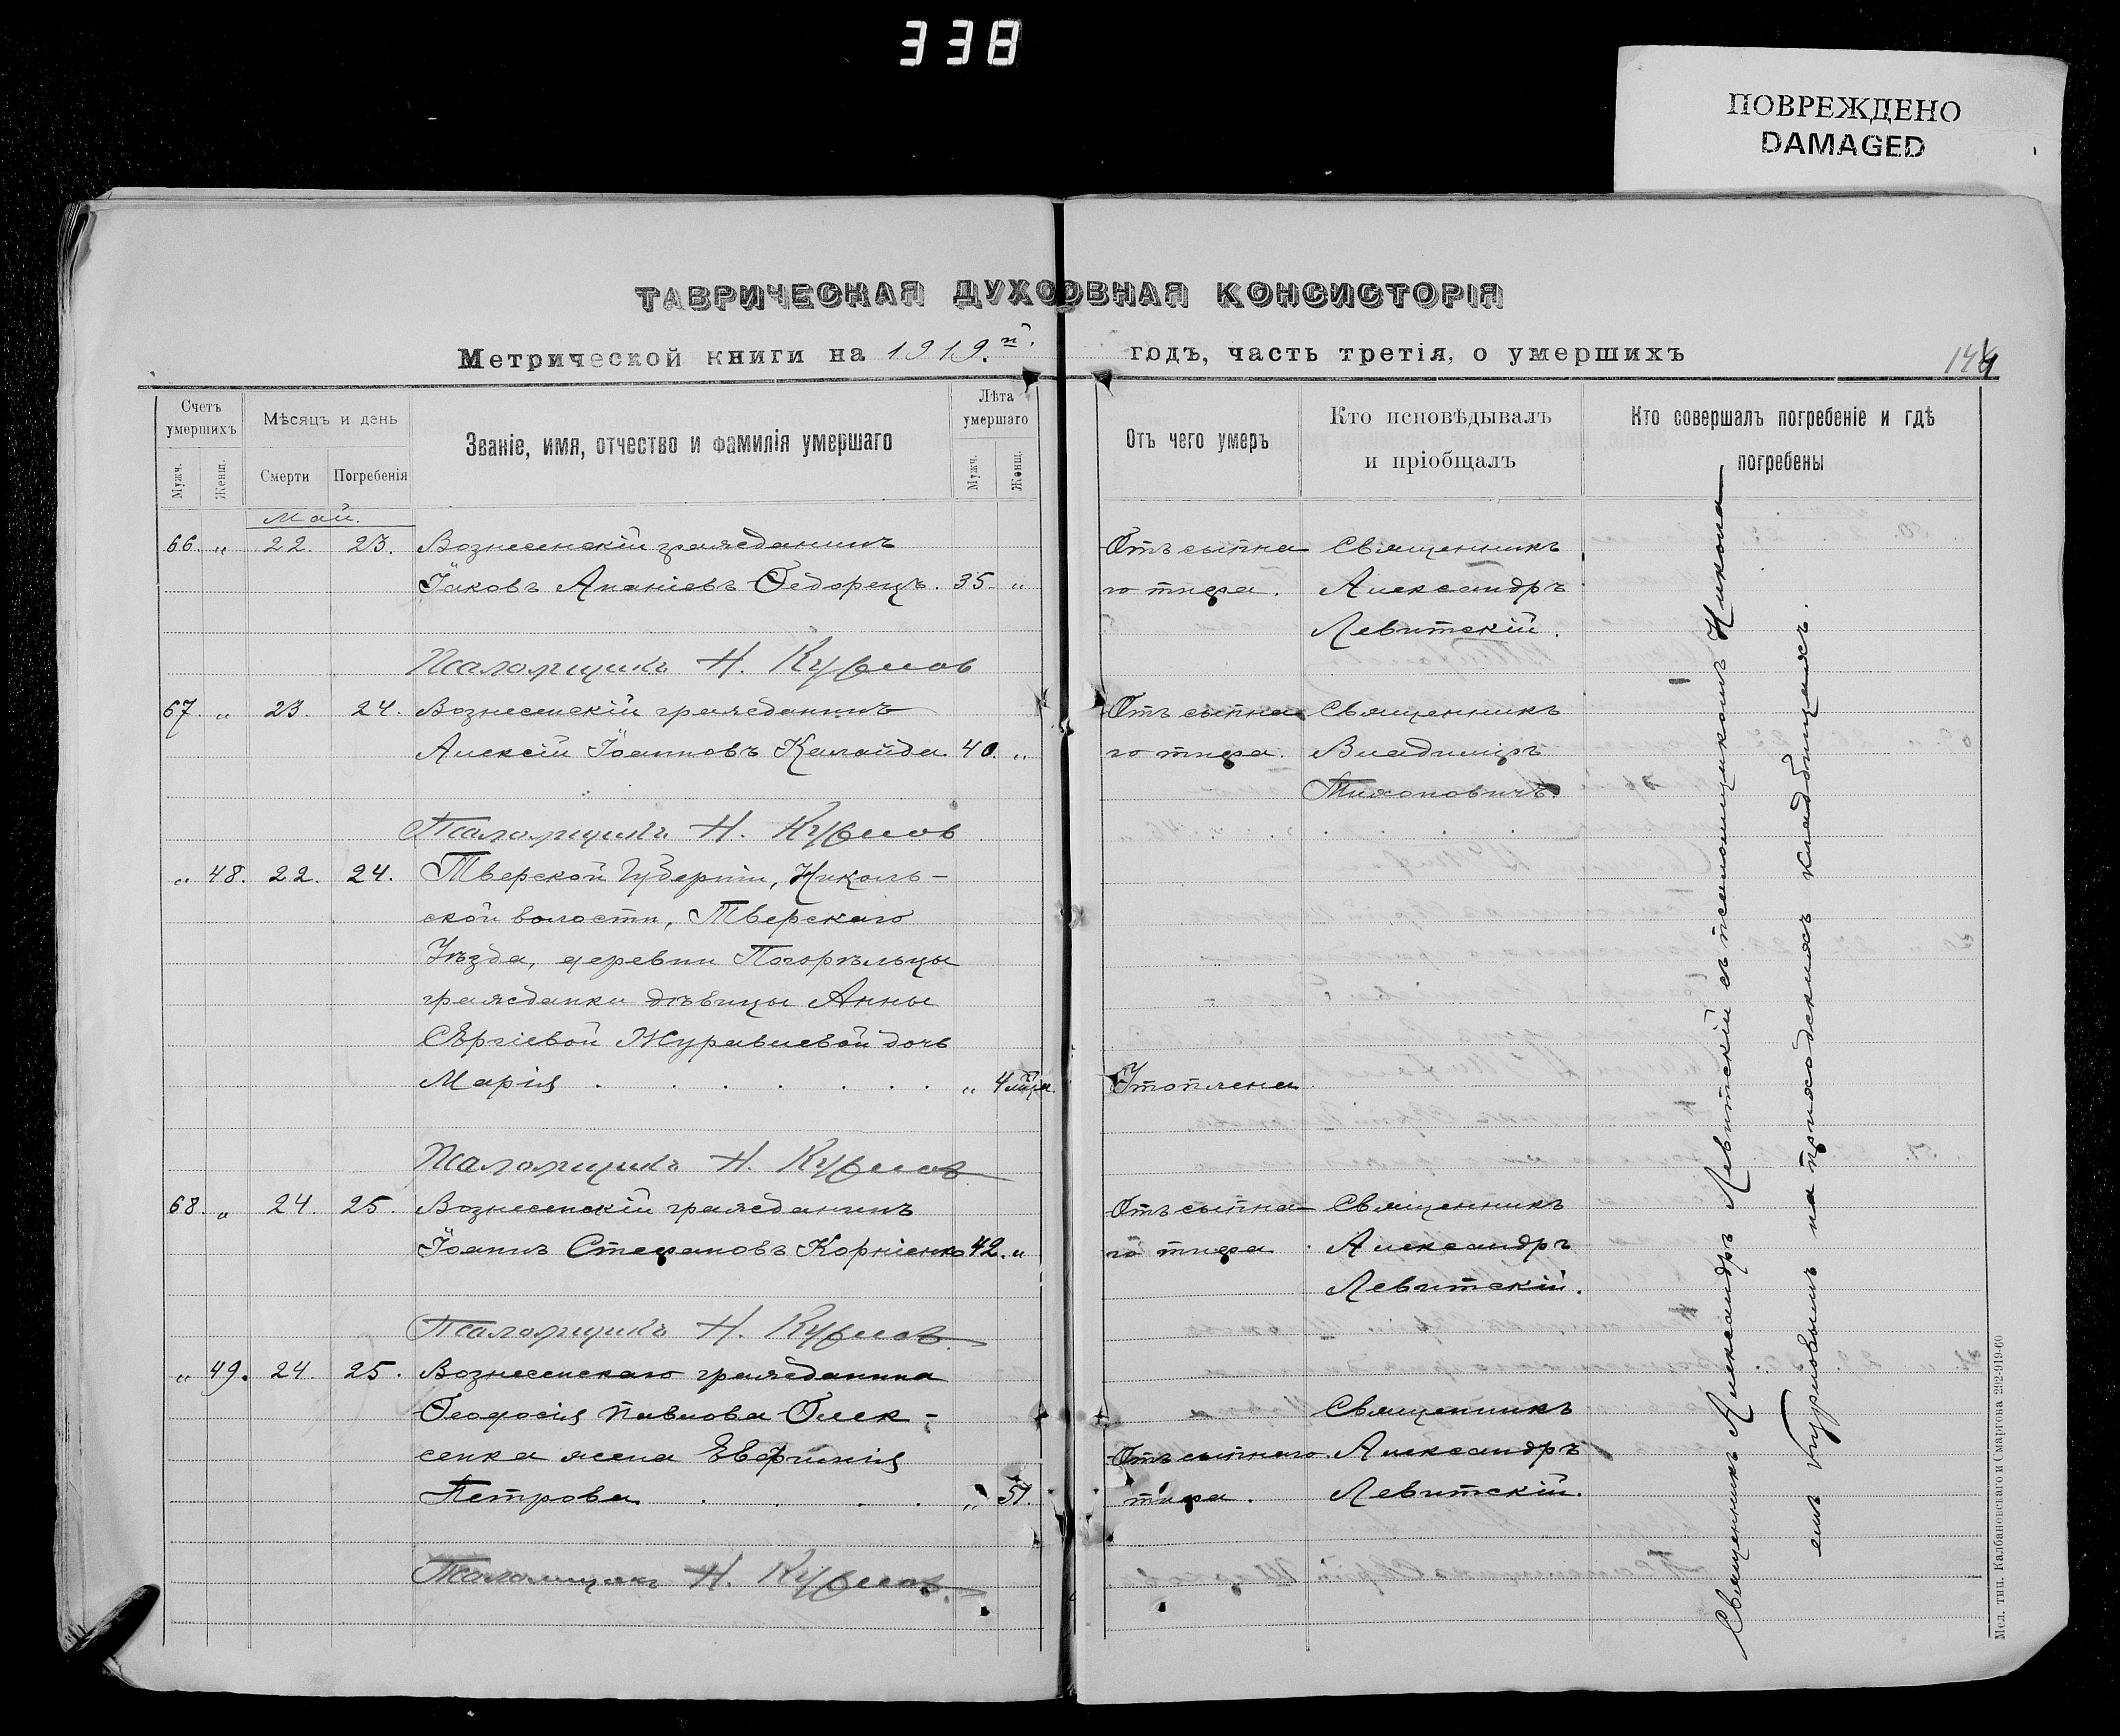 338
ПОВРЕЖДЕНО
DAMAGED
ТАВРИЧЕСКАЯ ДУХОВНАЯ КОНСИСТОРІЯ
Метрической книги на 1919.й годъ, часть третія, о умершихъ
144
Счетъ умершихъ
Мѣсяцъ и день
Званіе, имя, отчество и фамилія умершаго
Лѣта умершаго
Отъ чего умеръ
Кто исповѣдывалъ и пріобщалъ
Кто совершалъ погребеніе и гдѣ погребены
Мужч. Женщ. Смерти Погребенія Мужч. Женщ.
Май.
66. „ 22. 23. Вознесенскій гражданинъ Отъ сыпна Священникъ
Іаковъ Ананіевъ Ѳедорецъ. 35. „ го тифа. Александръ
Левитскій.
Псаломщикъ Н.
67. „ 23. 24. Вознесенскій гражданинъ Отъ сыпна Священникъ
Алексій Іоанновъ Калайда 40. „ го тифа. Владиміръ
Тихоновичъ.
Псаломщикъ Н.
„ 48. 22. 24. Тверской Губерніи, Николь-
ской волости, Тверскаго
Уѣзда, деревни Погорѣльцы
гражданки дѣвицы Анны
Сергіевой Журавлевой дочь
Марія . . . . . . . „ 4 мѣсца. Утоплена
Псаломщикъ Н.
68. „ 24. 25. Вознесенскій гражданинъ Отъ сыпна Священникъ
Іоаннъ Стефановъ Корніенко 42. „ го тифа. Александръ
Левитскій.
Псаломщикъ Н.
„ 49. 24. 25. Вознесенскаго гражданина
Ѳеодосія Павлова Олек- Священникъ
сенка жена Евфимія Отъ сыпнаго Александръ
Петрова . . . . . „ 51. тифа. Левитскій.
Псаломщикъ Н.
Священникъ Александръ Левитскій съ псаломщикомъ Никола
емъ на приходскихъ кладбищахъ.
Мел. тип. Калбановскаго и Смаргона 292-919-60